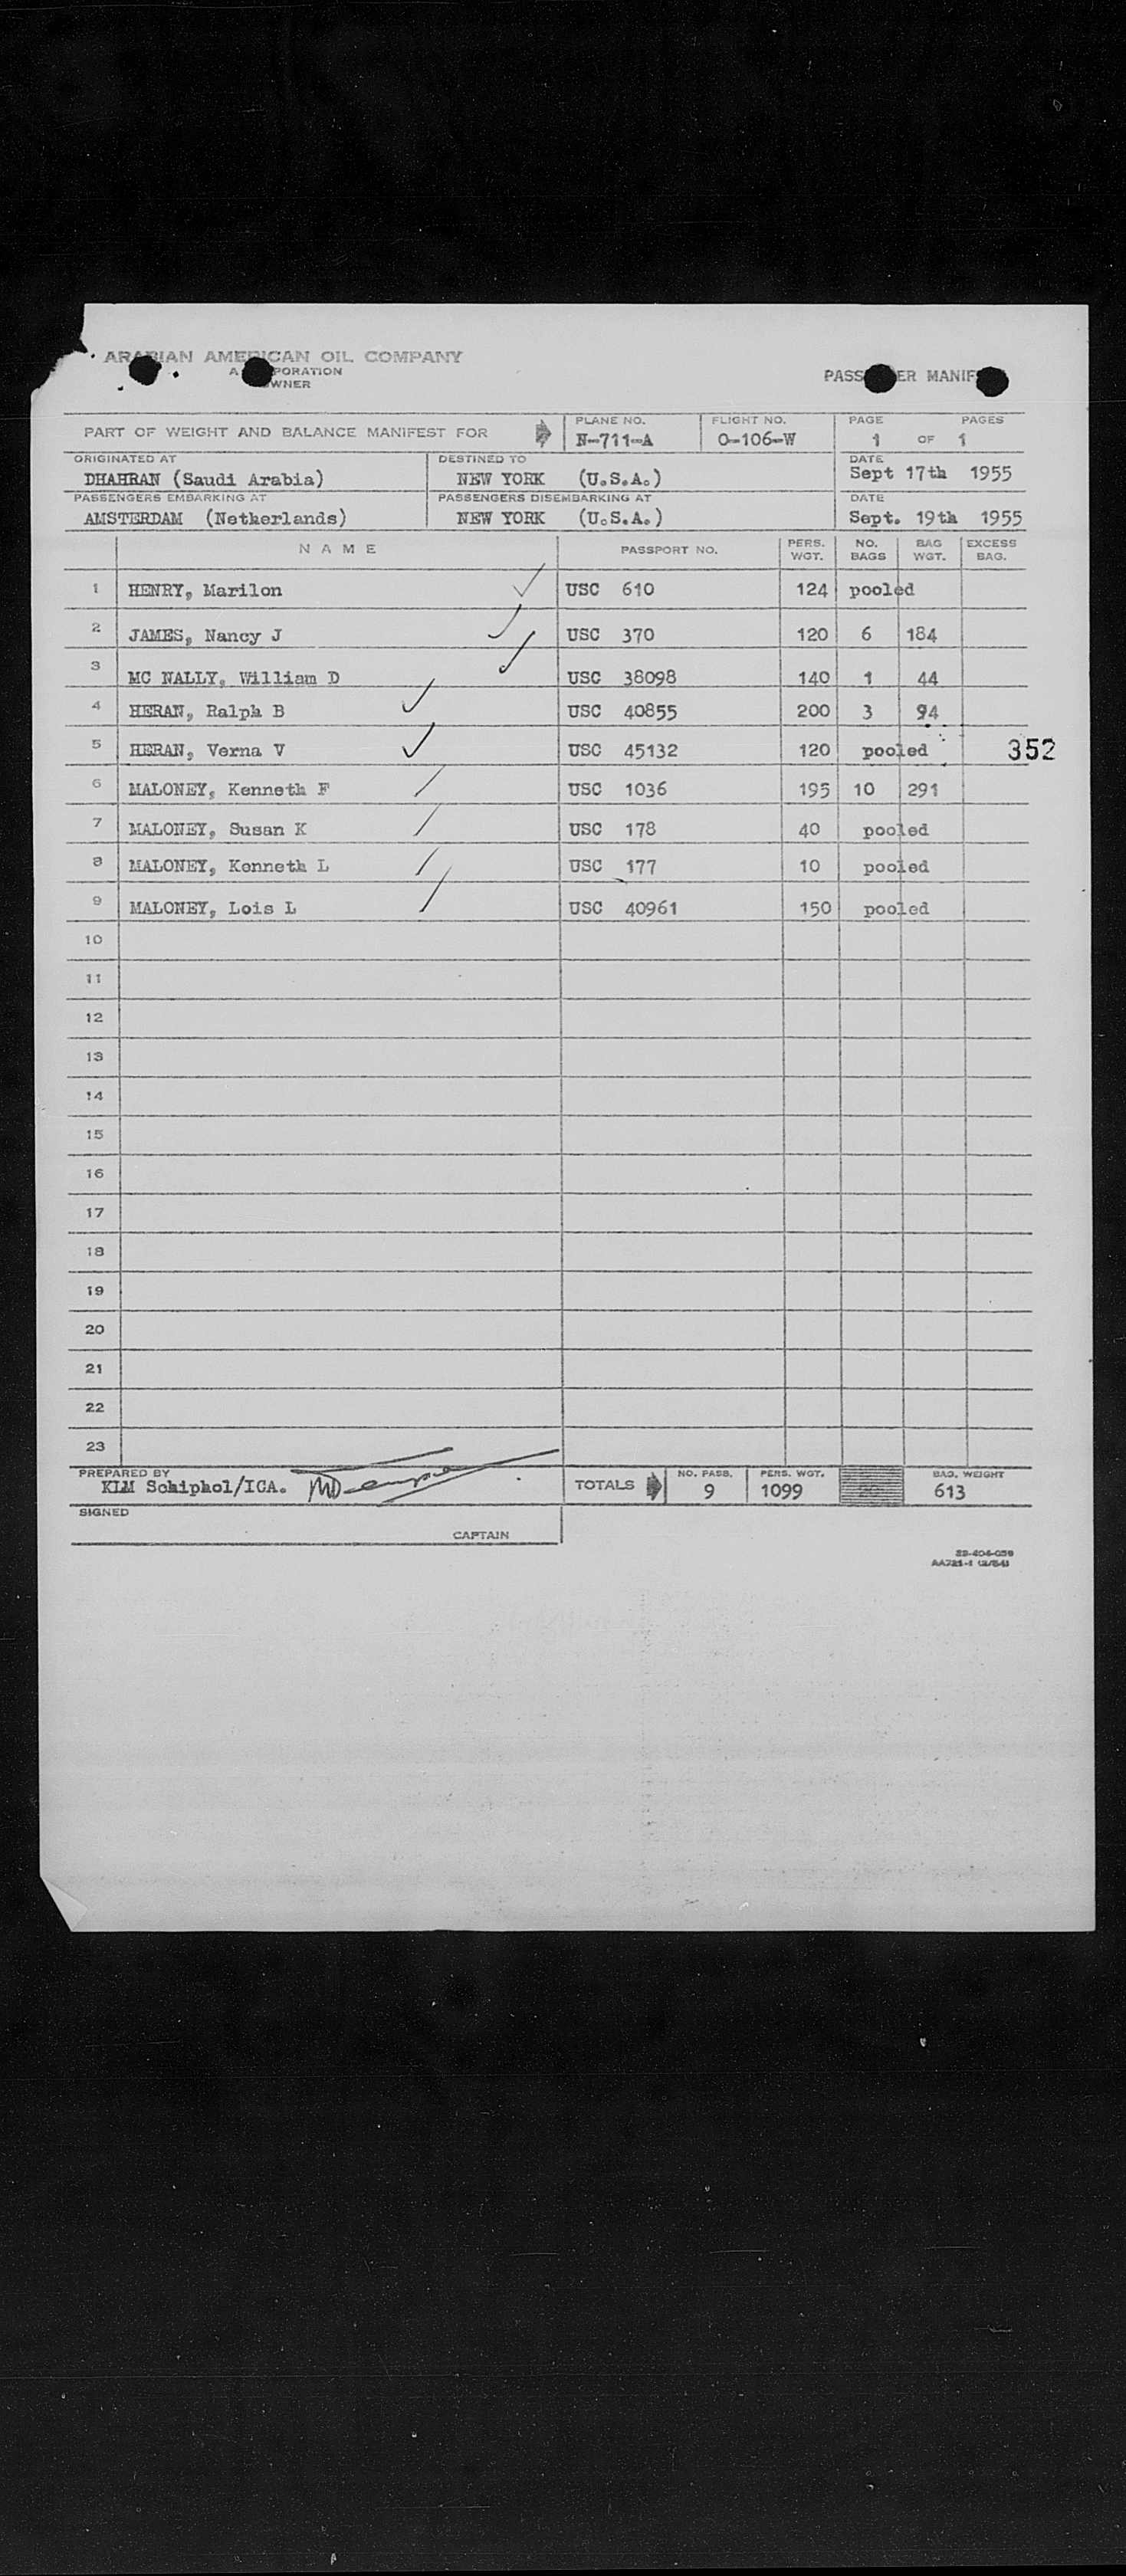 ARABIAN AMERICAN OIL COMPANY
A PORATION
WNER
PASS ER MANIF
PART OF WEIGHT AND BALANCE MANIFEST FOR
PLANE NO.
N-711-A
FLIGHT NO.
O-106-W
PAGE PAGES
1 OF 1
ORIGINATED AT
DHAHRAN (Saudi Arabia)
DESTINED TO
NEW YORK (U.S.A.)
DATE
Sept 17th 1955
PASSENGERS EMBARKING AT
AMSTERDAM (Netherlands)
PASSENGERS DISEMBARKING AT
NEW YORK (U.S.A.)
DATE
Sept. 19th 1955
NAME PASSPORT NO. PERS. WGT. NO. BAGS BAG WGT. EXCESS BAG.
1 HENRY, Marilon USC 610 124 pooled
2 JAMES, Nancy J USC 370 120 6 184
3 MC NALLY, William D USC 38098 140 1 44
4 HERAN, Ralph B USC 40855 200 3 94
5 HERAN, Verna V USC 45132 120 pooled 352
6 MALONEY, Kenneth F USC 1036 195 10 291
7 MALONEY, Susan K USC 178 40 pooled
8 MALONEY, Kenneth L USC 177 10 pooled
9 MALONEY, Lois L USC 40961 150 pooled
10
11
12
13
14
15
16
17
18
19
20
21
22
23
PREPARED BY
KLM Schiphol/IGA.
TOTALS
NO. PASS.
9
PERS. WGT.
1099
BAG. WEIGHT
613
SIGNED
CAPTAIN